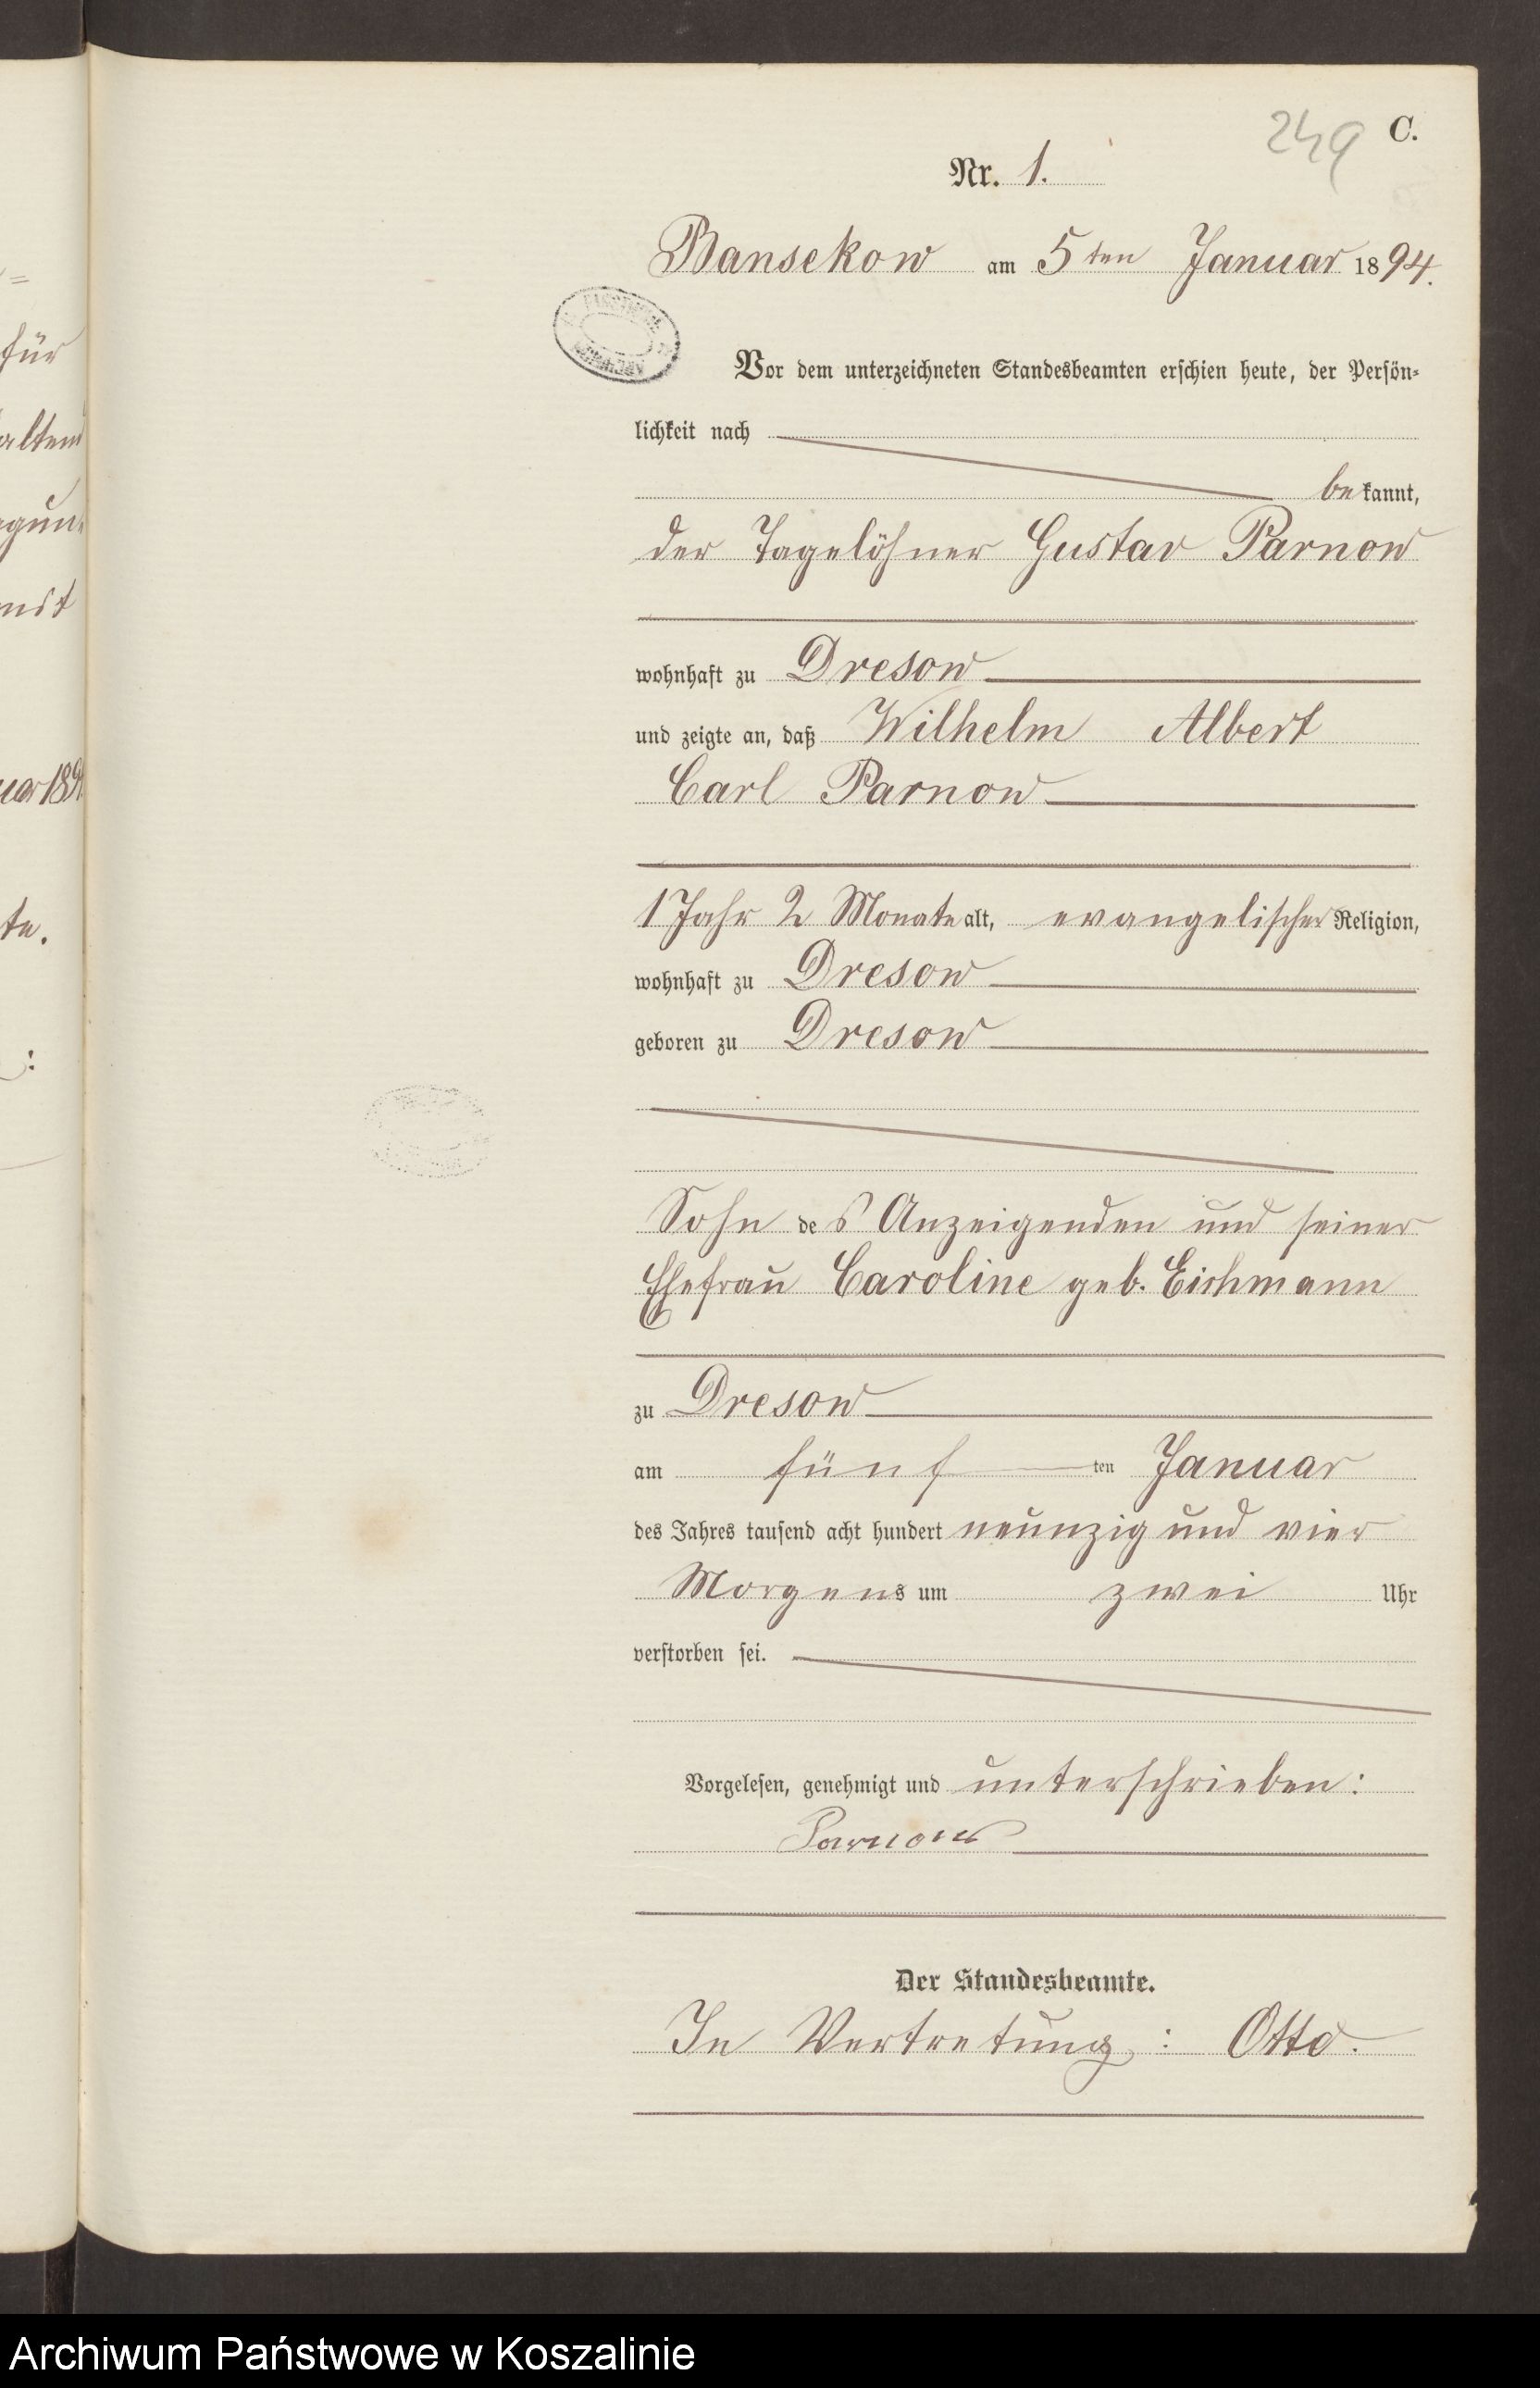 für
altend
mit
te.
249 C.
Nr. 1.
Bansekow am 5ten Januar 1894.
Vor dem unterzeichneten Standesbeamten erschien heute, der Persön-
lichkeit nach
bekannt,
der Tagelöhner Gustav Parnow
wohnhaft zu Dresow
und zeigte an, daß Wilhelm Albert
Carl Parnow
1 Jahr 2 Monate alt, evangelischer Religion,
wohnhaft zu Dresow
geboren zu Dresow
Sohn des Anzeigenden und seiner
Ehefrau Caroline geb. Eichmann
zu Dresow
am fünf ten Januar
des Jahres tausend acht hundert neunzig und vier
Morgens um zwei Uhr
verstorben sei.
Vorgelesen, genehmigt und unterschrieben:
Parnow
Der Standesbeamte.
In Vertretung: Otto.
Archiwum Państwowe w Koszalinie